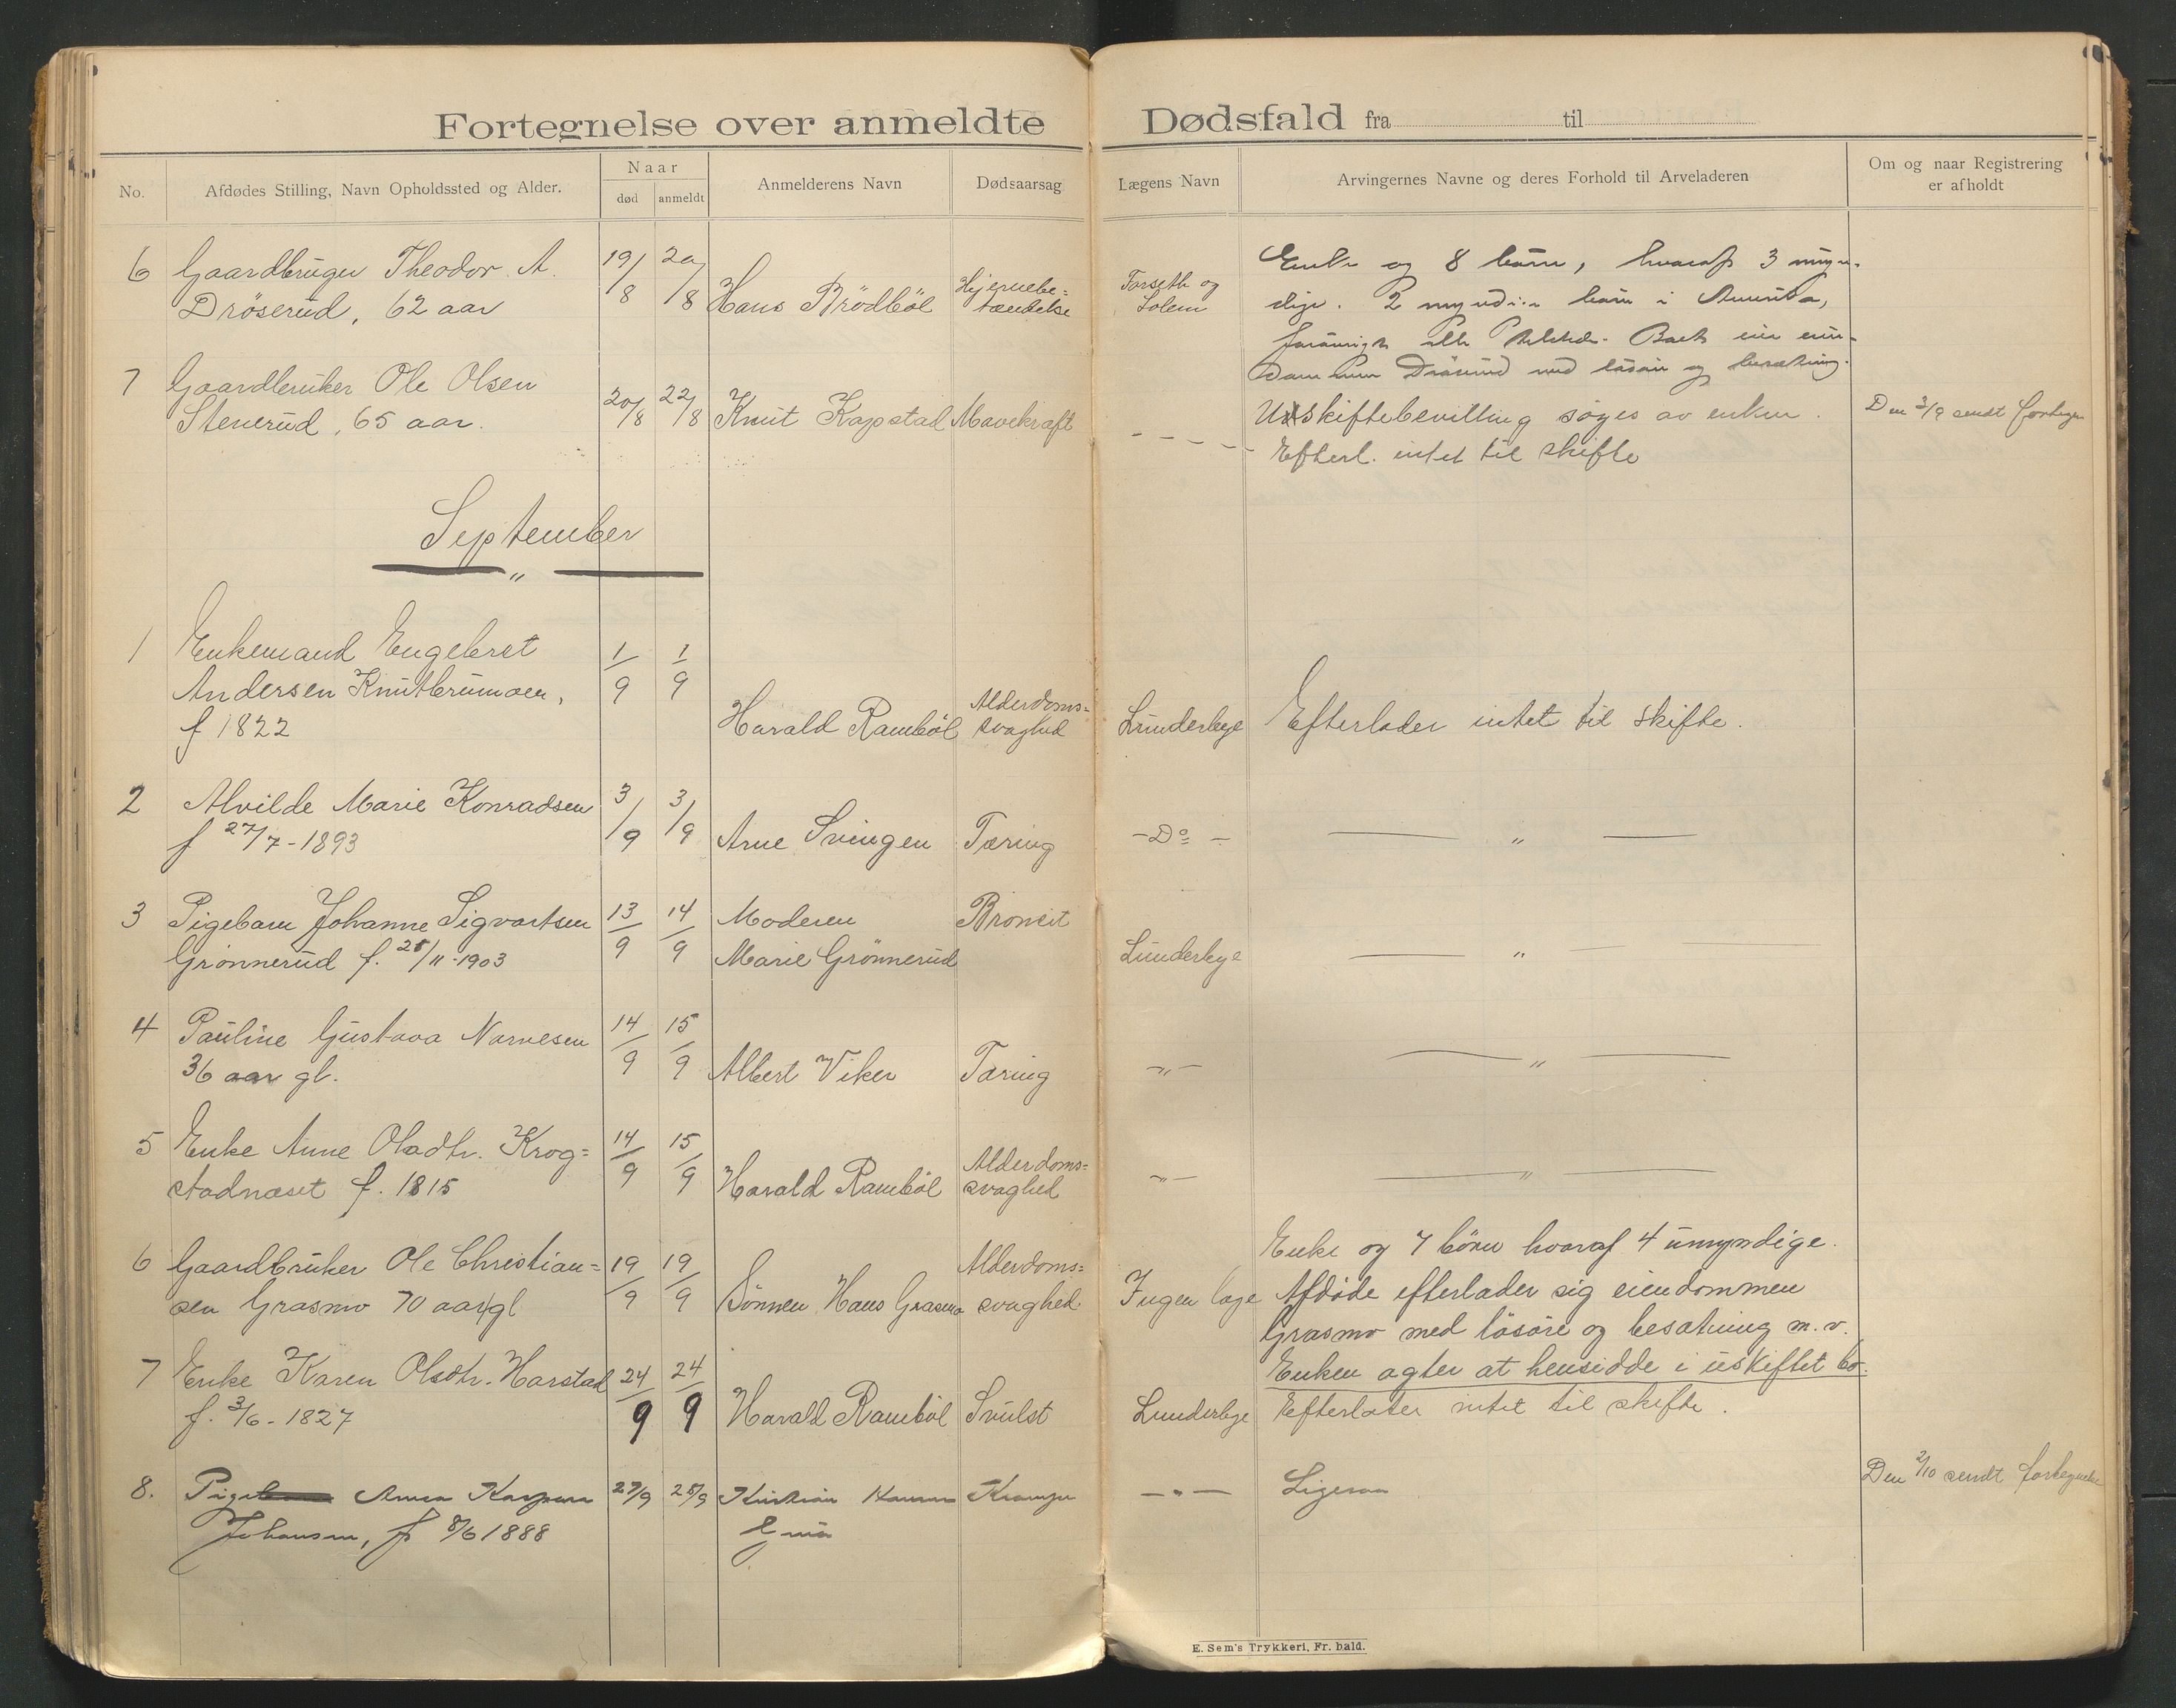 Fortegnelse over anmeldte Dødsfald fra til
No.
Afdødes Stilling, Navn Opholdssted og Alder.
Naar
død anmeldt
Anmelderens Navn
Dødsaarsag
Lægens Navn
Arvingernes Navne og deres Forhold til Arveladeren
Om og naar Registrering
er afholdt
6 Gaardbruger Theodor A.
Drøserud, 62 aar
19/8 20/8
Hans Brödböl
Hjernebe-
tændelse
Farseth og
Solem
Enke og 8 børn, hvoraf 3 myn-
dige. 2 myndige børn i Amerika,
forøvrigt alle Boet eier eien-
dommen Drøserud med løsøre og besætning.
Uskiftebevilling søges av enken.
7 Gaardbruker Ole Olsen
Stenerud, 65 aar.
20/8 22/8
Knut Kapstad
Mavekræft
- - - -
Efterl. intet til skifte
Den 3/9 sendt fortegn
September
"
1 Enkemand Engebret
Andersen Knutbrumoen,
f 1822
1/9 1/9
Harald Ramböl
Alderdoms=
svaghed
Lunderbye
Efterlader intet til skifte.
2 Alvilde Marie Konradsen
f 27/7-1893
3/9 3/9
Arne Svingen
Tæring
- Do -
"
3 Pigebarn Johanne Sigvartsen
Grønnerud f. 25/11-1903
13/9 14/9
Moderen
Marie Grønnerud
Broncit
Lunderbye
"
4 Pauline Gustava Narvesen
36 aar gl.
14/9 15/9
Albert Viker
Tæring
-"-
"
5 Enke Anne Olsdtr. Krog=
stadnæset f. 1815
14/9 15/9
Harald Ramböl
Alderdoms=
svaghed
-"-
"
6 Gaardbruker Ole Christian=
sen Grasmo 70 aar gl
19/9 19/9
Sönnen Hans Grasmo
Alderdoms=
svaghed.
Ingen læge
Enke og 7 börn hvoraf 4 umyndige.
Afdöde efterlader sig eiendommen
Grasmo med lösöre og besætning m.v.
Enken agter at hensidde i uskiftet bo.
7 Enke Karen Olsdtr. Harstad
f. 3/6-1827
24/9 24/9
Harald Ramböl
Svulst
Lunderbye
Efterlater intet til skifte.
Den 2/10 sendt fortegnelse
8. Pige Anna Kaspara
Johansen, f 8/6 1888
27/9 28/9
Kristian Hansen
Krampe
-"-
Ligesaa
E. Sem's Trykkeri, Fr. hald.